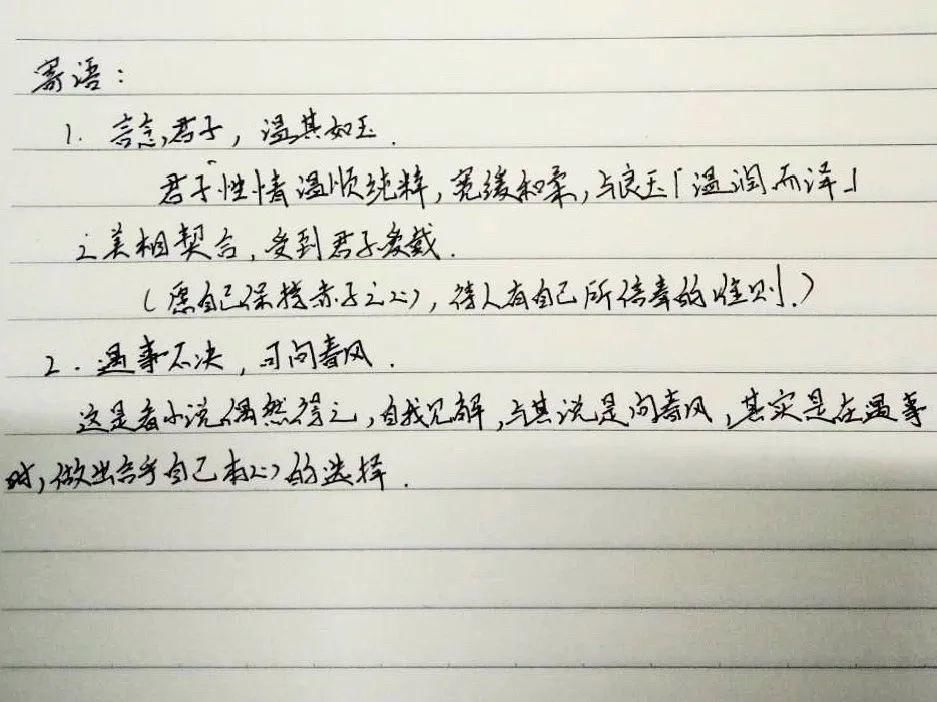 寄语：
1. 言念君子，温其如玉.
君子性情温顺纯粹，宽缓和柔，与良玉「温润而泽」
之美相契合，受到君子爱戴.
（愿自己保持赤子之心，待人有自己所信奉的准则.）
2. 遇事不决，可问春风.
这是看小说偶然得之，自我见解，与其说是问春风，其实是在遇事
时，做出合乎自己本心的选择.